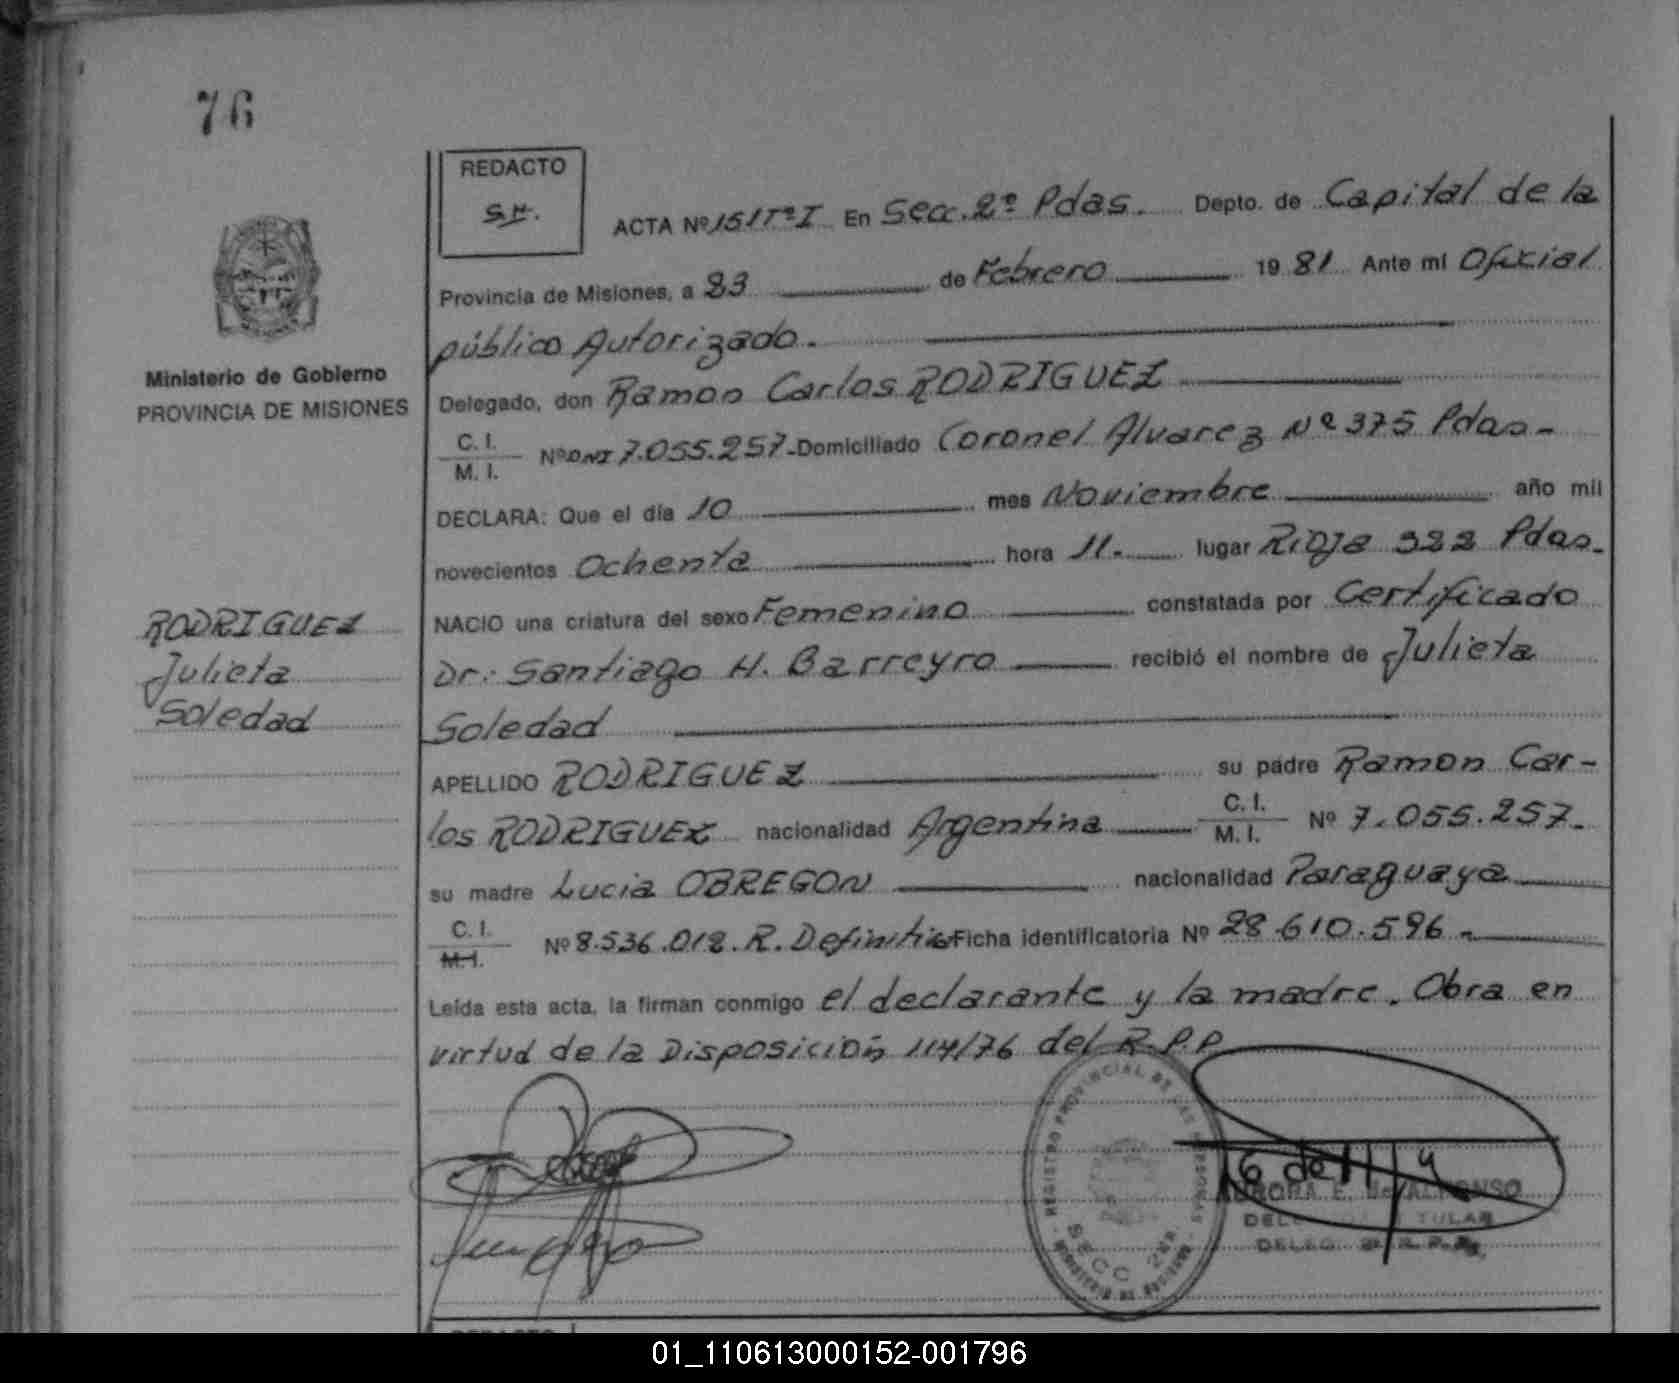 76
REDACTO
S.H.
ACTA Nº 151 Tº I En Secc. 2º Pdas. Depto. de Capital de la
Provincia de Misiones, a 23 de Febrero 19 81 Ante mi Oficial
público Autorizado.
Ministerio de Gobierno
PROVINCIA DE MISIONES
Delegado, don Ramon Carlos RODRIGUEZ
C. I.
M. I.
Nº DNI 7.055.257- Domiciliado Coronel Alvarez Nº 375 Pdas-
DECLARA: Que el día 10 mes Noviembre año mil
novecientos Ochenta hora 11. lugar Rioja 322 Pdas.
NACIO una criatura del sexo Femenino constatada por Certificado
Dr: Santiago H. Barreyro recibió el nombre de Julieta
Soledad
RODRIGUEZ
Julieta
Soledad
APELLIDO RODRIGUEZ su padre Ramon Car-
los RODRIGUEZ nacionalidad Argentina C. I. M. I. Nº 7.055.257-
su madre Lucia OBREGON nacionalidad Paraguaya
C. I.
M. I.
Nº 8.536.018. R. Definitiva Ficha identificatoria Nº 28.610.596-
Leída esta acta, la firman conmigo el declarante y la madre. Obra en
virtud de la Disposición 114/76 del R.P.P
REGISTRO PROVINCIAL DE LAS PERSONAS
SECC 2da.
AURORA E. ALFONSO
TITULAR
DELEG. 2ª R. P. P.
REDACTO
01_110613000152-001796